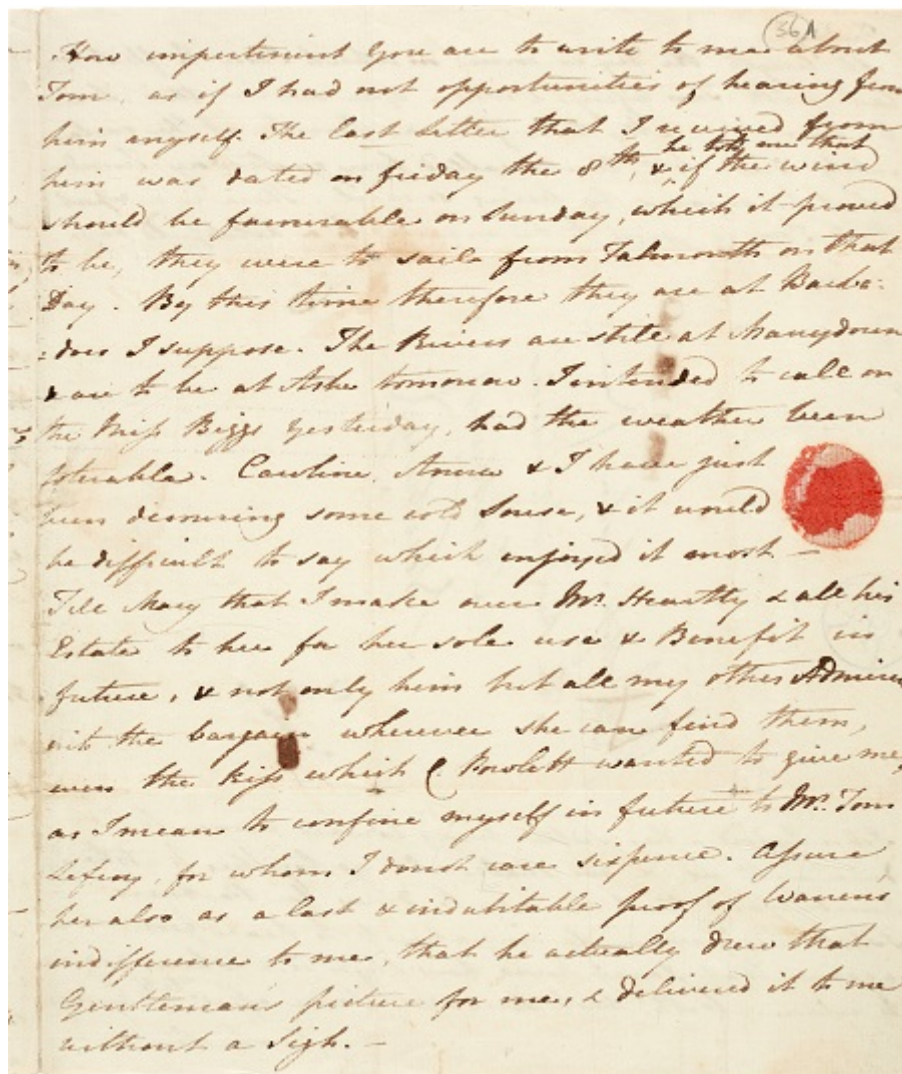 36A
How impertinent you are to write to me about
Tom, as if I had not opportunities of hearing from
him myself. The last letter that I received from
him was dated on friday the 8th, & he told me that if the wind
should be favourable on Sunday, which it proved
to be, they were to sail from Falmouth on that
Day. By this time therefore they are at Barba=
=does I suppose. The Rivers are still at Manydown
& are to be at Ashe tomorrow. I intended to call on
the Miss Biggs yesterday, had the weather been
tolerable. Caroline, Anna & I have just
been devouring some cold Souse, & it would
be difficult to say which enjoyed it most —
Tell Mary that I make over Mr. Heartley & all his
Estate to her for her sole use & Benefit in
future, & not only him, but all my other Admirers
into the bargain wherever she can find them,
even the kiss which C. Powlett wanted to give me,
as I mean to confine myself in future to Mr. Tom
Lefroy, for whom I donot care sixpence. Assure
her also as a last & indubitable proof of Warren's
indifference to me, that he actually drew that
Gentleman's picture for me, & delivered it to me
without a Sigh. —